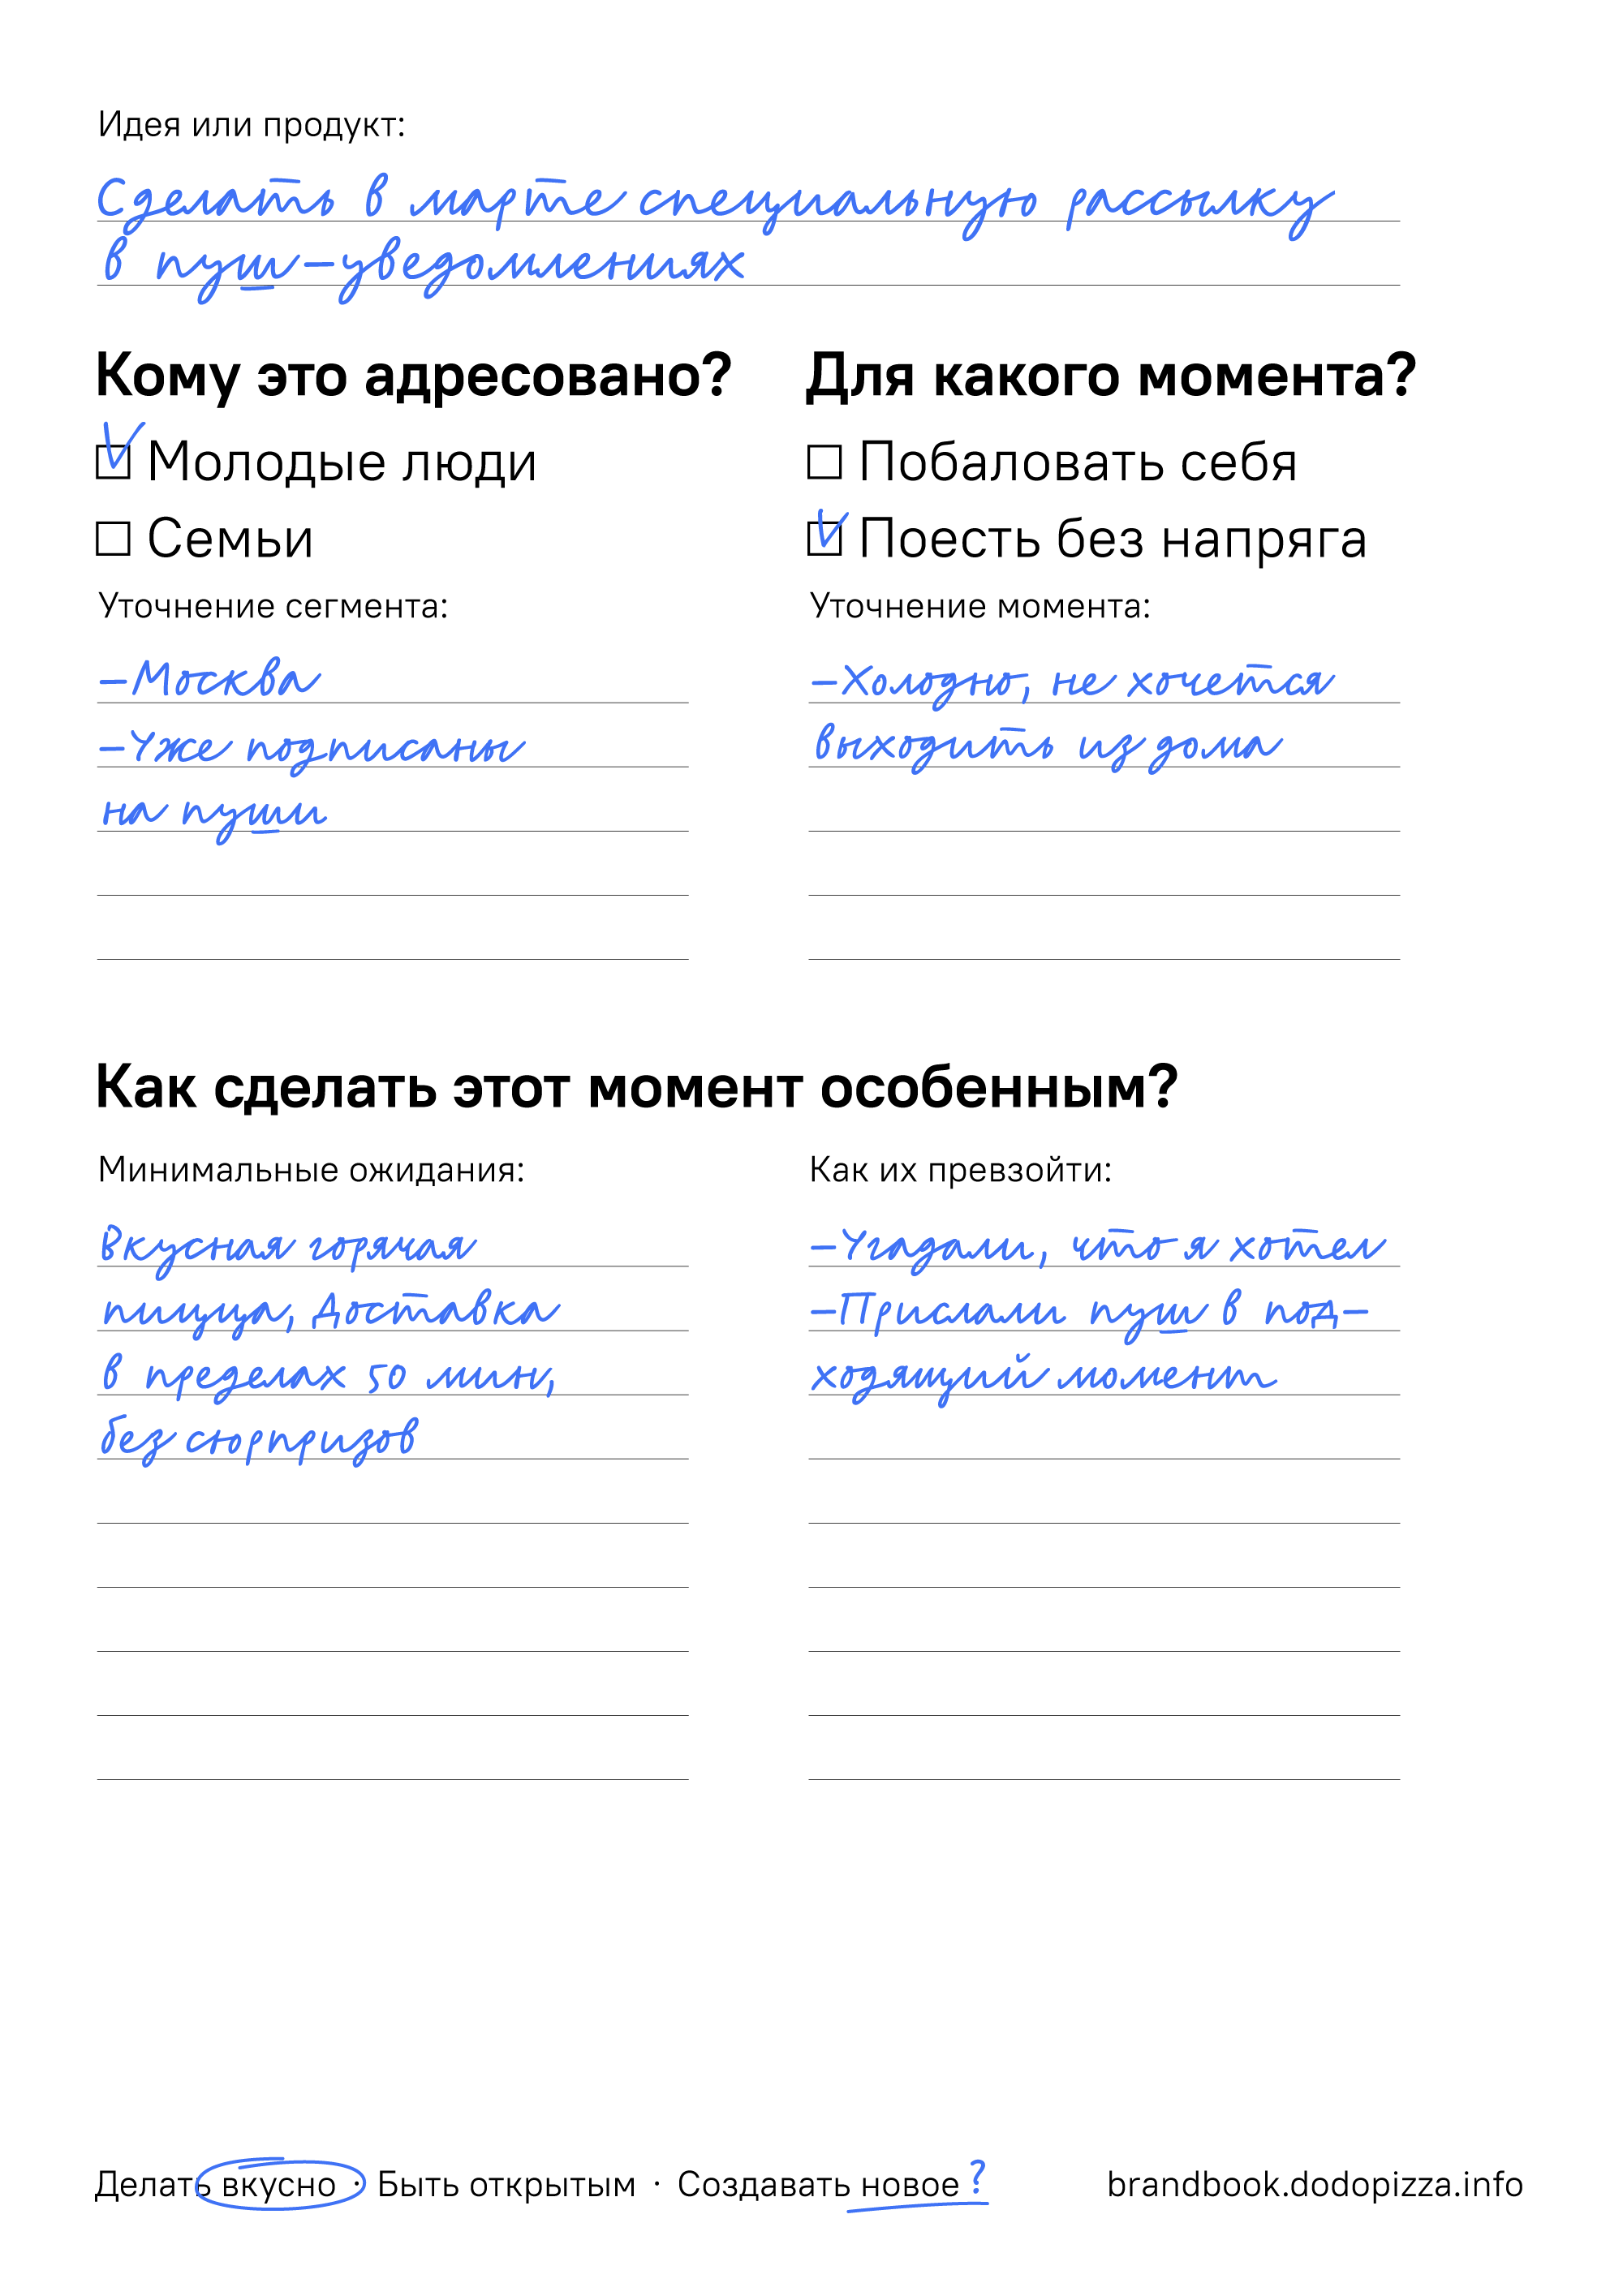 Идея или продукт:
Сделать в марте специальную рассылку
в пуш-уведомлениях
Кому это адресовано?
Молодые люди
Семьи
Уточнение сегмента:
-Москва
-Уже подписаны
на пуши
Для какого момента?
Побаловать себя
Поесть без напряга
Уточнение момента:
-Холодно, не хочется
выходить из дома
Как сделать этот момент особенным?
Минимальные ожидания:
Вкусная горячая
пицца, Доставка
в пределах 50 мин,
без сюрпризов
Как их превзойти:
-Угадали, что я хотел
-Прислали пуш в под-
ходящий момент
Делать вкусно · Быть открытым · Создавать новое ? brandbook.dodopizza.info